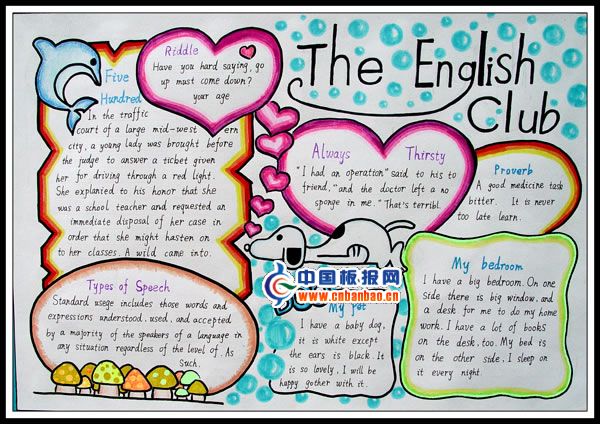 The English
Club
Riddle
Have you hard saying, go
up must come down?
your age
Five
Hundred
In the traffic
court of a large mid-west ern
city, a young lady was brought before
the judge to answer a ticbet given
her for driving through a red light.
She explanied to his honor that she
was a school teacher and requested an
immediate disposal of her case in
order that she might hasten on
to her classes. A wild came into.
Always Thirsty
"I had an operation" said to his to
friend," and the doctor left a no
sponge in me." "That's terribl.
Proverb
A good medicine task
bitter. It is never
too late learn.
Types of Speech
Standard usege includes those words and
expressions understood, used, and accepted
by a majority of the speakers of a language in
any situation regardless of the level of. As
Such.
中国板报网
www.cnbanbao.cn
My Pet
I have a baby dog,
it is white except
the ears is black. It
is so lovely. I will be
happy gother with it.
My bedroom
I have a big bedroom. On one
side there is big window, and
a desk for me to do my home
work. I have a lot of books
on the desk, too. My bed is
on the other side. I sleep on
it every night.